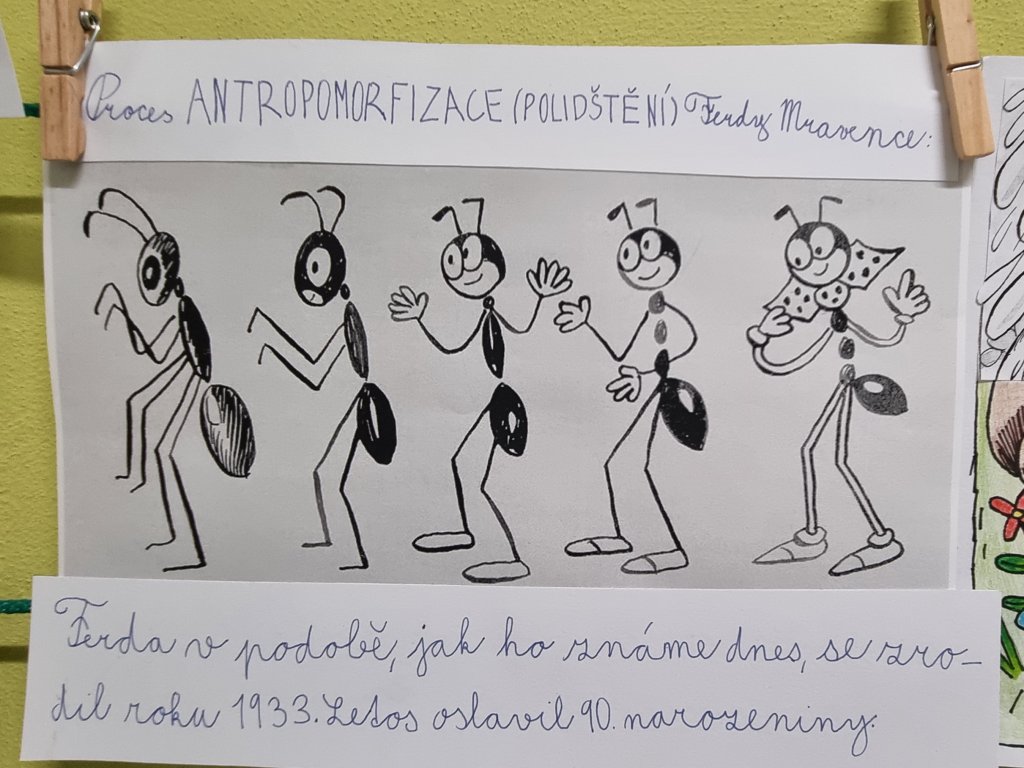 Proces ANTROPOMORFIZACE (POLIDŠTĚNÍ) Ferdy Mravence:
Ferda v podobě, jak ho známe dnes, se zro-
dil roku 1933. Letos oslavil 90. narozeniny.